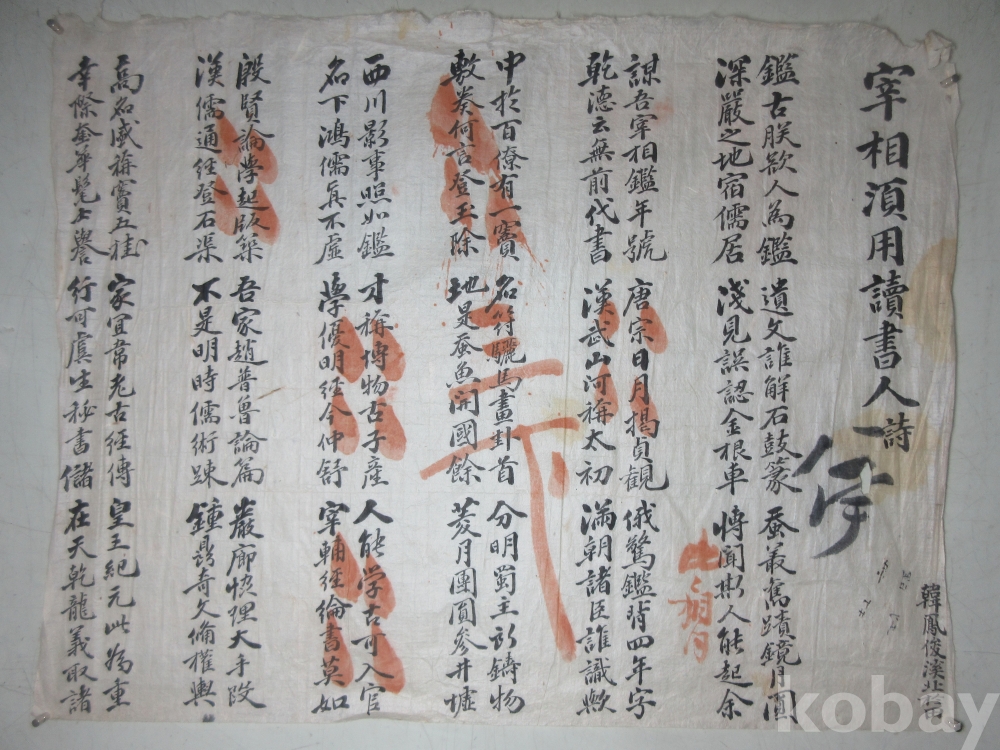 宰相須用讀書人詩
韓鳳俊溪北
鑑古朕欲人為鑑 遺文誰解石鼓篆 蚕叢舊蹟鏡月圓
深嚴之地宿儒居 淺見誤認金根車 博聞斯人能起余
諒吾宰相鑑年號 唐宗日月揭貞觀 俄驚鑑背四年字
乾德云無前代書 漢武山河稱太初 滿朝諸臣誰識歟
中於百僚有一竇 名符驪馬畫卦首 分明蜀主所鑄物
敷奏何言登玉除 地是蚕魚開國餘 菱月團圓參井墟
西川影事照如鑑 才稱博物古子産 人能学古可入官
名下鴻儒眞不虛 學優明經今仲舒 宰輔經綸書莫如
殷賢論學起版築 吾家趙普魯論篇 巖廊燮理大手段
漢儒通經登石渠 不是明時儒術踈 鍾鼎奇文備權輿
高名咸稱竇五桂 家冝常 古經傳 皇王紀元此為重
幸際奎華髦士譽 行可虞生秘書儲 在天乾龍義取諸
三下
kobay